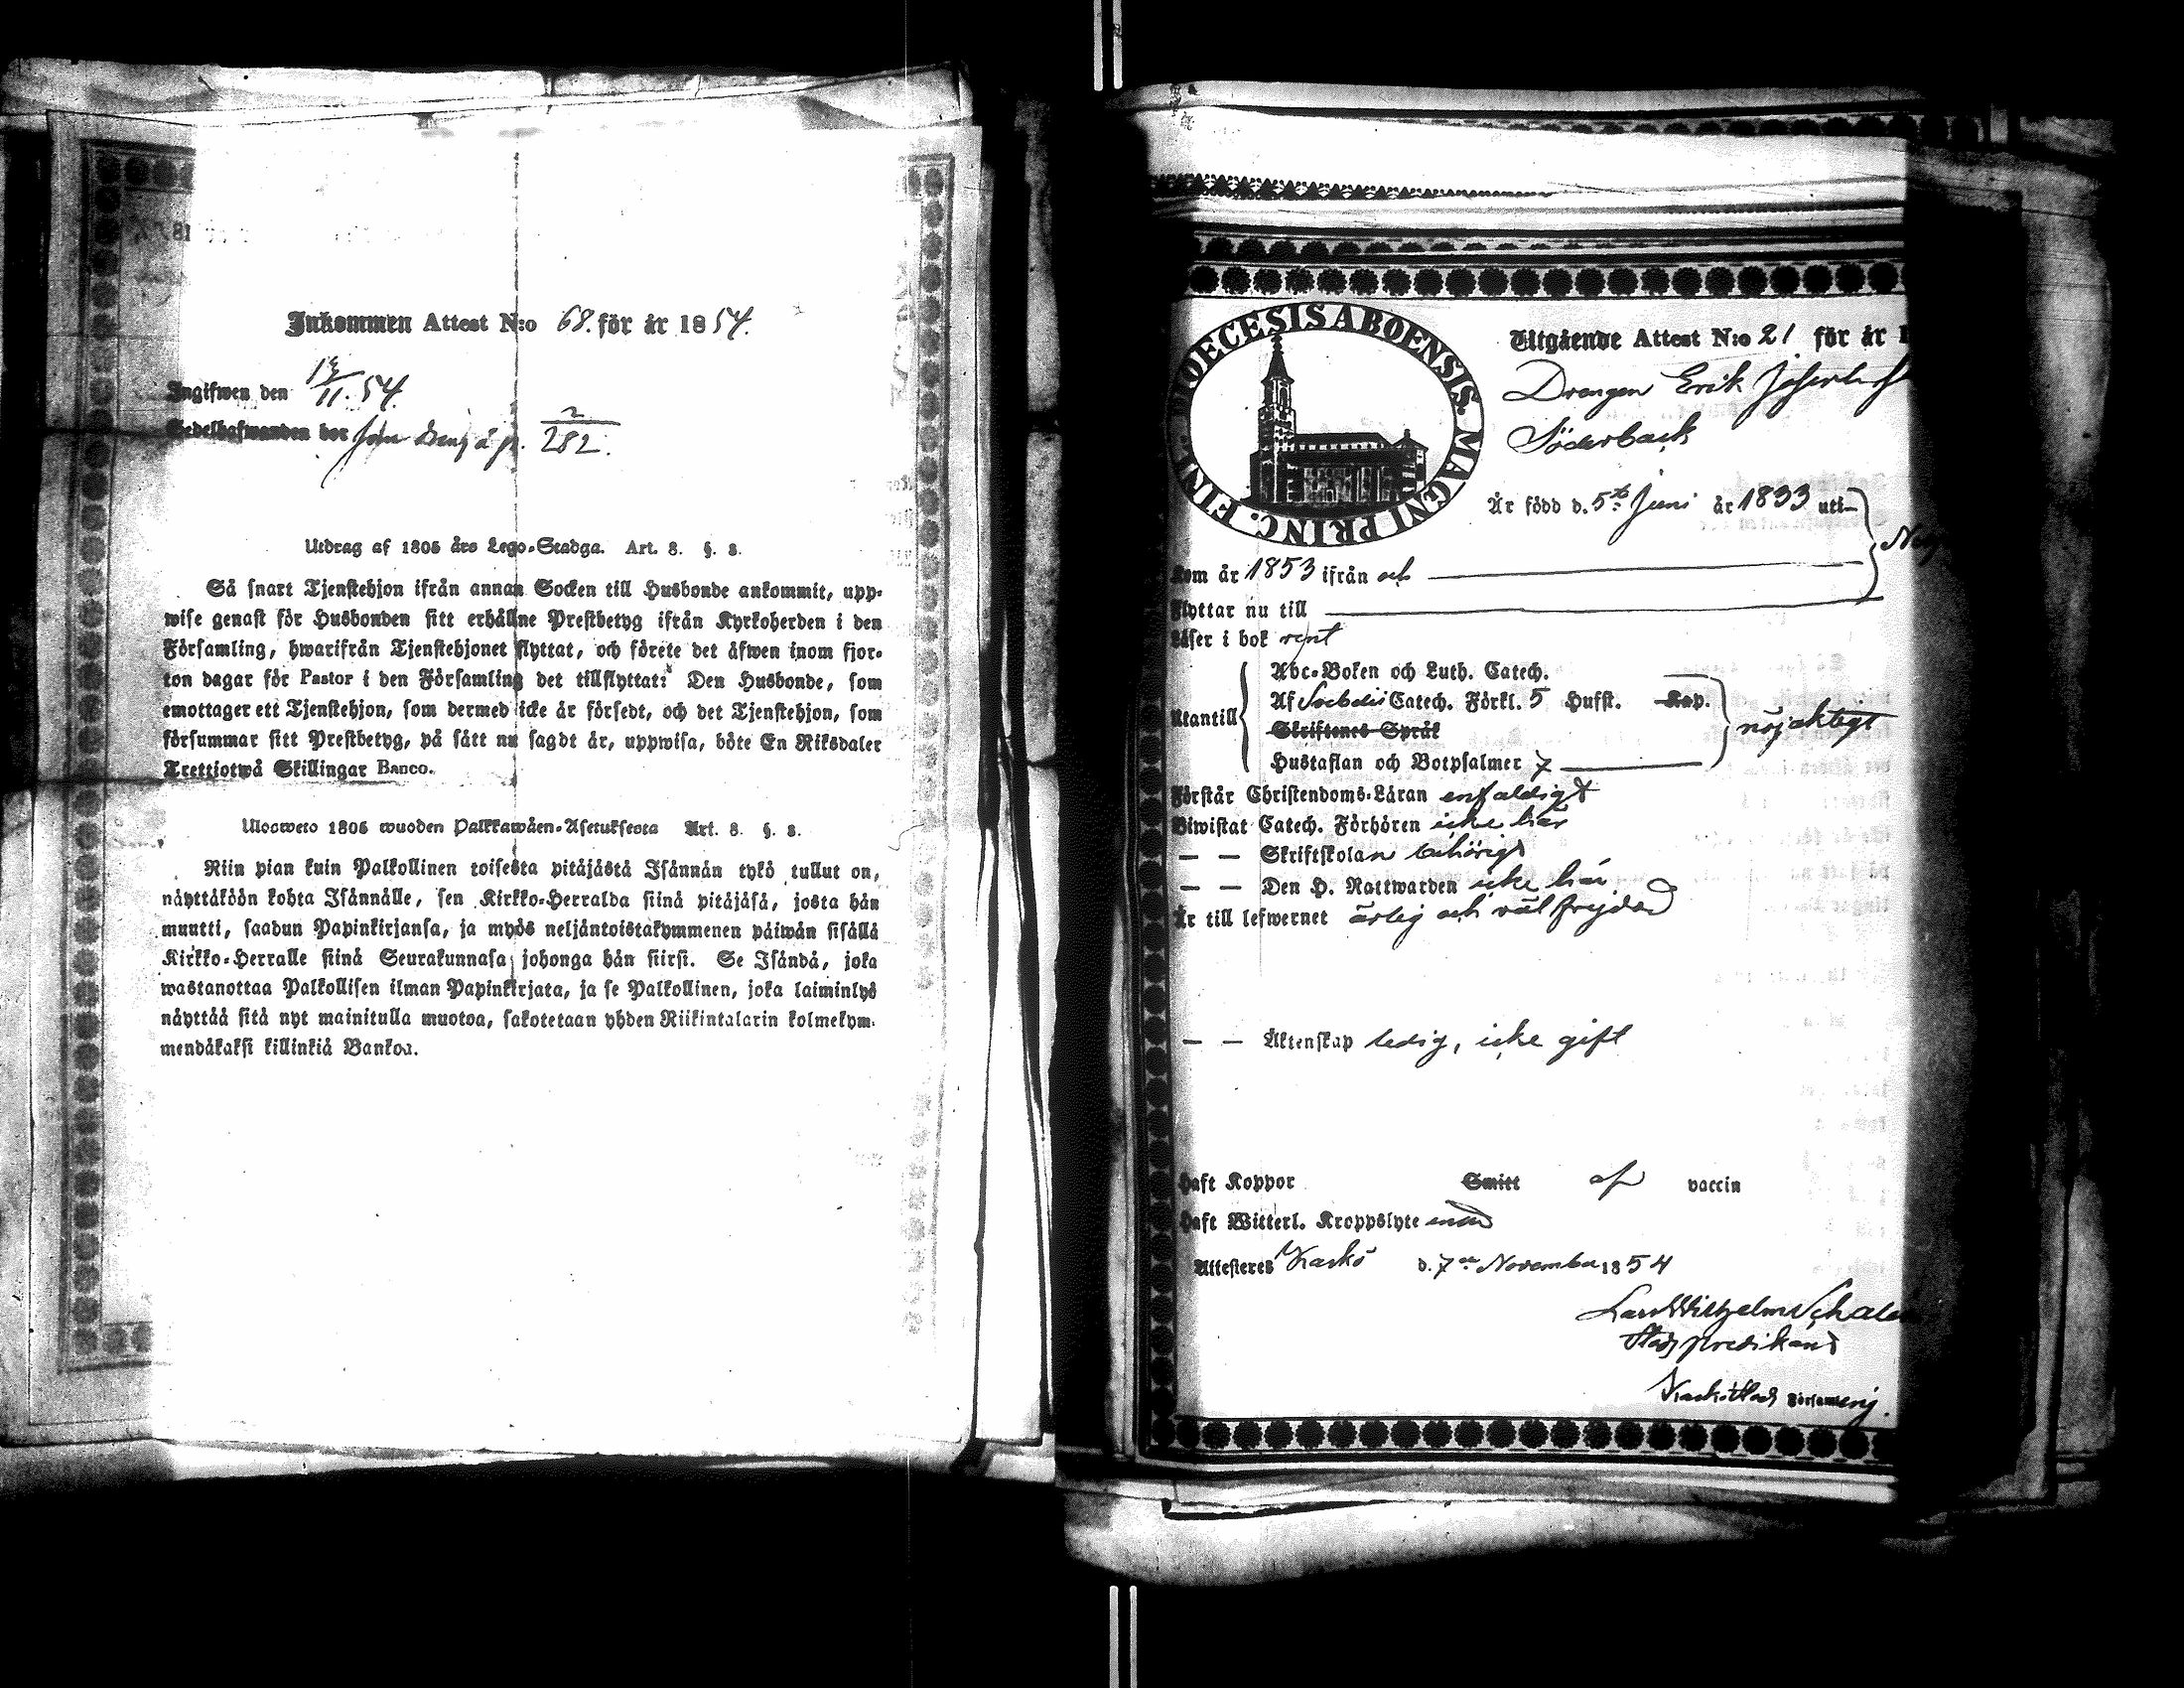 Inkommen Attest N:o 68. för år 1854.
Ingifwen den 13/11. 54.
Sedelhafwanden bor som dräng å p. 2/282.
Utdrag af 1805 års Lego-Stadga. Art. 8. §. 8.
Så snart Tjenstehjon ifrån annan Socken till Husbonde ankommit, upp-
wise genast för Husbonden sitt erhållne Prestbetyg ifrån Kyrkoherden i den
Församling, hwarifrån Tjenstehjonet flyttat, och förete det äfwen inom fjor-
ton dagar för Pastor i den Församling det tillflyttat: Den Husbonde, som
emottager ett Tjenstehjon, som dermed icke är försedt, och det Tjenstehjon, som
försummar sitt Prestbetyg, på sätt nu sagdt är, uppwisa, böte En Riksdaler
Trettiotwå Skillingar Banco.
Ulosweto 1805 wuoden Palkkawäen-Asetuksesta Art. 8. §. 8.
Niin pian kuin Palkollinen toisesta pitäjästä Isännän tykö tullut on,
näyttäköön kohta Isännälle, sen Kirkko-Herralda siinä pitäjäsä, josta hän
muutti, saadun Papinkirjansa, ja myös neljäntoistakymmenen päiwän sisällä
Kirkko-Herralle siinä Seurakunnasa johonga hän siirsi. Se Isändä, joka
wastanottaa Palkollisen ilman Papinkirjata, ja se Palkollinen, joka laiminlyö
näyttää sitä nyt mainitulla muotoa, sakotetaan yhden Riikintalarin kolmekym-
mendäkaksi killinkiä Bankoa.
DIOECESIS ABOENSIS. MAGNI PRINC. FINL.
Utgående Attest N:o 21 för år 1
Drengen Erik
Söderback
Är född d. 5te Juni år 1833 uti
Kom år 1853 ifrån och
Flyttar nu till
Läser i bok rent
Abc-Boken och Luth. Catech.
Utantill Af Svebelii Catech. Förkl. 5 Hufst. Kap. nöjaktigt
Skriftenes Språk
Hustaflan och Botpsalmer 7
Förstår Christendoms-Läran enfaldigt
Biwistat Catech. Förhören icke här
— — Skriftskolan behörigt
— — Den H. Nattwarden icke här
Är till lefwernet ärlig och väl frejdad
— — Äktenskap ledig, icke gift
Haft Koppor Smitt af vaccin
Haft Witterl. Kroppslyte
Attesteres Kaskö d. 7de November 1854
Lars Wilhelm
Stads predikant
Kaskö Stads Församling.